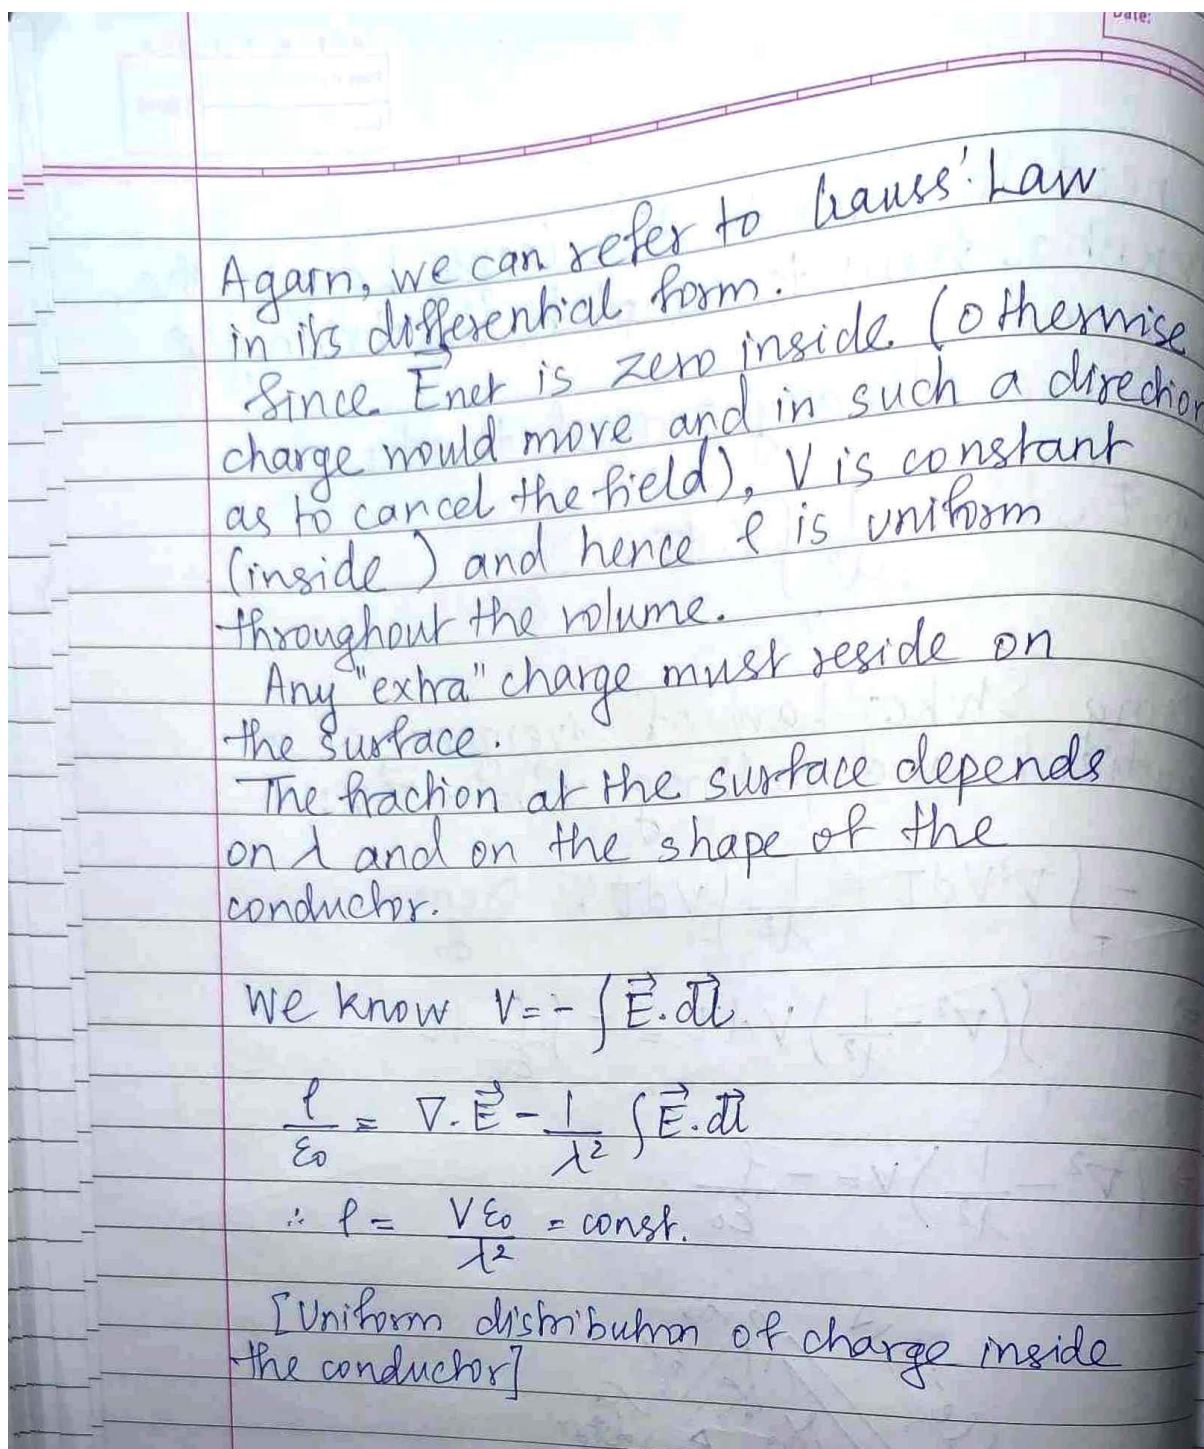 Date:
Again, we can refer to Gauss' Law
in its differential form.
Since E⃗net is zero inside (otherwise
charge would move and in such a direction
as to cancel the field), V is constant
(inside) and hence ρ is uniform
throughout the volume.
Any "extra" charge must reside on
the surface.
The fraction at the surface depends
on λ and on the shape of the
conductor.
We know V = - ∫ E⃗ . dl⃗
ρ/ε₀ = ∇ . E⃗ - 1/λ² ∫ E⃗ . dl⃗
∴ ρ = Vε₀/λ² = const.
[Uniform distribution of charge inside
the conductor]